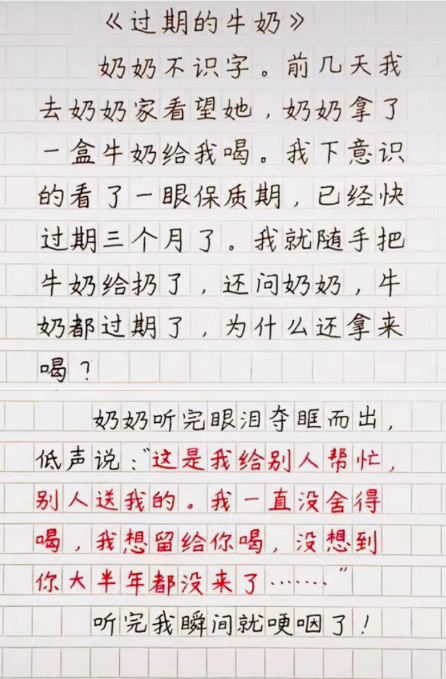 《过期的牛奶》
奶奶不识字。前几天我
去奶奶家看望她，奶奶拿了
一盒牛奶给我喝。我下意识
的看了一眼保质期，已经快
过期三个月了。我就随手把
牛奶给扔了，还问奶奶，牛
奶都过期了，为什么还拿来
喝？
奶奶听完眼泪夺眶而出，
低声说：“这是我给别人帮忙，
别人送我的。我一直没舍得
喝，我想留给你喝，没想到
你大半年都没来了……”
听完我瞬间就哽咽了！